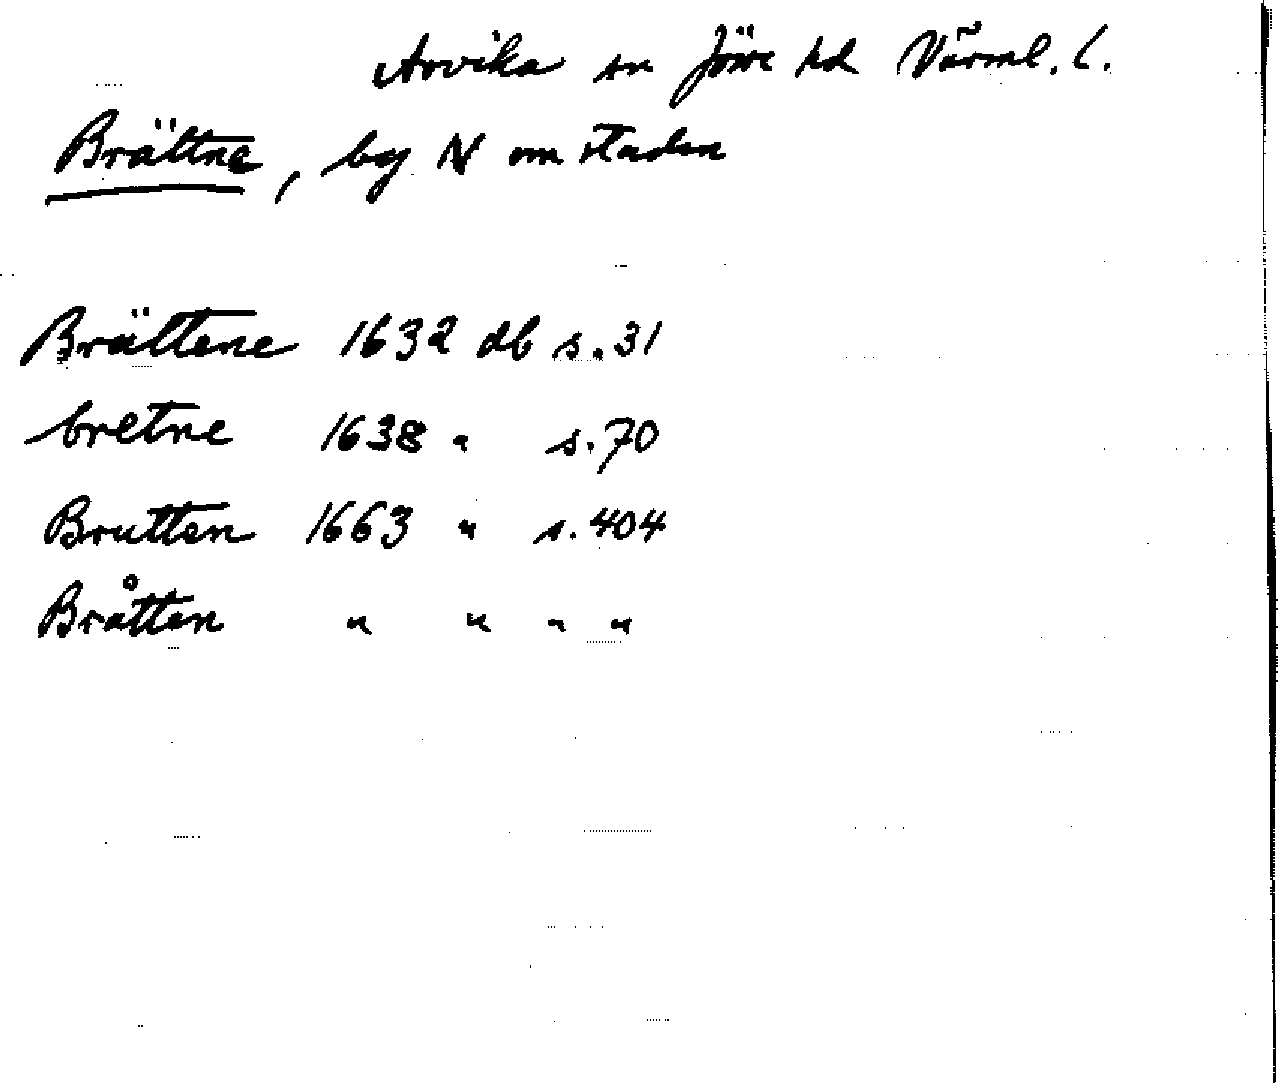 Arvika sn Jösse hd Värml. l.
Brättne, by N om staden
Brättene 1632 db s. 31
bretne 1638 " s. 70
Brutten 1663 " s. 404
Bråtten " " " "